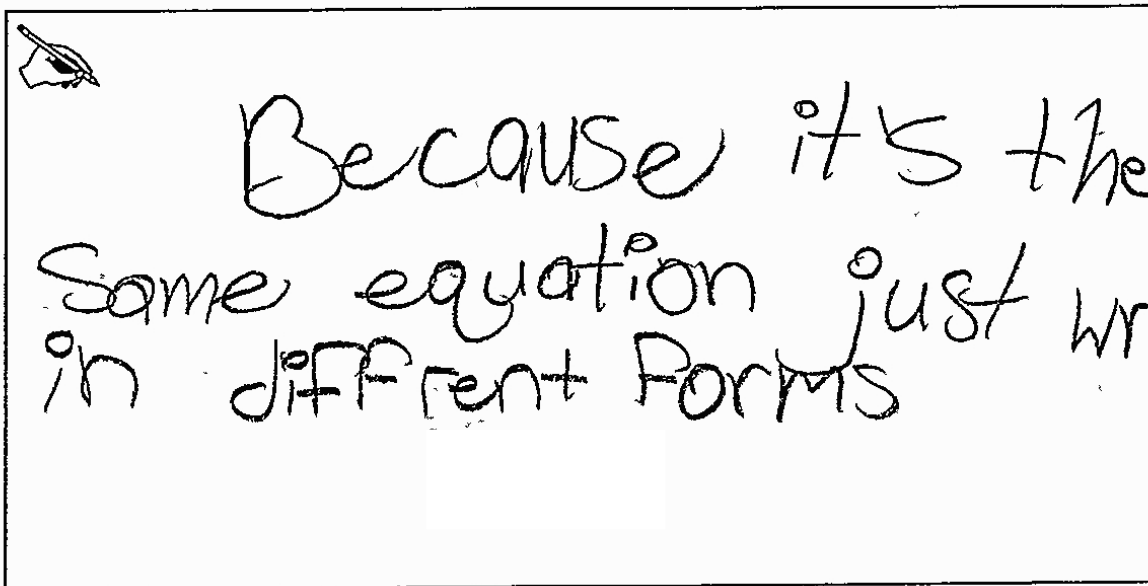 Because it's the
Same equation just wr
in diffrent forms